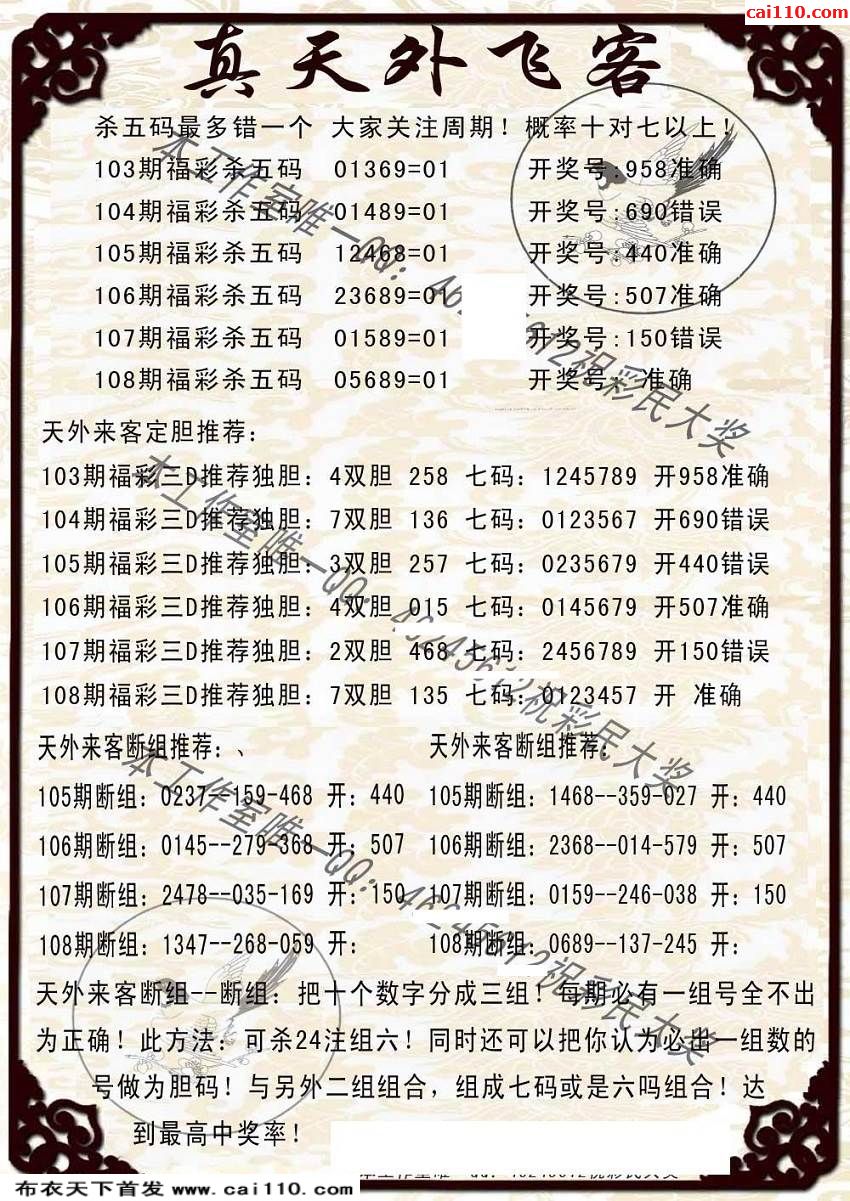 cai110.com
真天外飞客
杀五码最多错一个 大家关注周期！概率十对七以上！
103期福彩杀五码 01369=01 开奖号:958准确
104期福彩杀五码 01489=01 开奖号:690错误
105期福彩杀五码 12468=01 开奖号:440准确
106期福彩杀五码 23689=01 开奖号:507准确
107期福彩杀五码 01589=01 开奖号:150错误
108期福彩杀五码 05689=01 开奖号: 准确
天外来客定胆推荐：
103期福彩三D推荐独胆：4双胆 258 七码：1245789 开958准确
104期福彩三D推荐独胆：7双胆 136 七码：0123567 开690错误
105期福彩三D推荐独胆：3双胆 257 七码：0235679 开440错误
106期福彩三D推荐独胆：4双胆 015 七码：0145679 开507准确
107期福彩三D推荐独胆：2双胆 468 七码：2456789 开150错误
108期福彩三D推荐独胆：7双胆 135 七码：0123457 开 准确
天外来客断组推荐：、 天外来客断组推荐：
105期断组：0237--159-468 开：440 105期断组：1468--359-027 开：440
106期断组：0145--279-368 开：507 106期断组：2368--014-579 开：507
107期断组：2478--035-169 开：150 107期断组：0159--246-038 开：150
108期断组：1347--268-059 开： 108期断组：0689--137-245 开：
天外来客断组--断组：把十个数字分成三组！每期必有一组号全不出
为正确！此方法：可杀24注组六！同时还可以把你认为必出一组数的
号做为胆码！与另外二组组合，组成七码或是六吗组合！达
到最高中奖率！
布衣天下首发 www.cai110.com